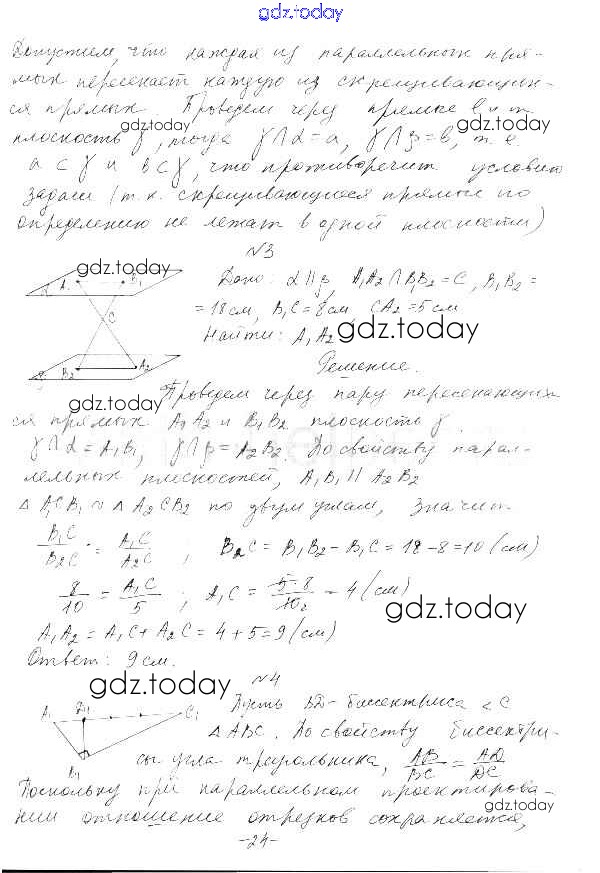 gdz.today
Допустим, что каждая из параллельных пря-
мых пересекает каждую из скрещивающих-
ся прямых. Проведем через прямые b и m
плоскость γ, тогда γ∩α=a, γ∩β=b, т. е.
gdz.today
a⊂γ и b⊂γ, что противоречит условию
gdz.today
задачи (т.к. скрещивающиеся прямые по
определению не лежат в одной плоскости)
№3
gdz.today
α A₁ B₁
C
B₂ A₂
Дано: α||β, A₁A₂∩B₁B₂=C, B₁B₂=
=18см, B₁C=8см, CA₂=5см
Найти: A₁A₂
gdz.today
Решение.
Проведем через пару пересекающих-
gdz.today
ся прямых A₁A₂ и B₁B₂ плоскость γ.
γ∩α=A₁B₁, γ∩β=A₂B₂. По свойству парал-
лельных плоскостей, A₁B₁ || A₂B₂
△A₁CB₁ ∾ △A₂CB₂ по двум углам, значит
B₁C/B₂C = A₁C/A₂C ; B₂C = B₁B₂-B₁C = 18-8=10(см)
8/10 = A₁C/5 ; A₁C = 5·8/10₂ = 4(см)
gdz.today
A₁A₂ = A₁C+A₂C = 4+5=9(см)
Ответ: 9см.
gdz.today
№4
A₁ D₁ C₁
B₁
Пусть BD-биссектриса <C
△ABC. По свойству биссектри-
сы угла треугольника, AB/BC = AD/DC
gdz.today
gdz.today
Поскольку при параллельном проектирова-
нии отношение отрезков сохраняется,
gdz.today
-24-